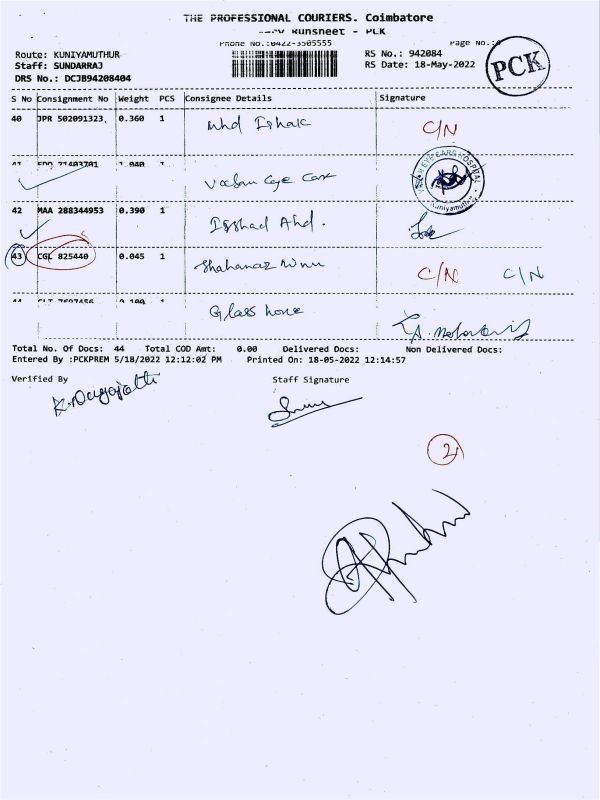 THE PROFESSIONAL COURIERS. Coimbatore
Runsheet - PCK
Phone No.:0422-3505555 Page No.:
Route: KUNIYAMUTHUR RS No.: 942084
Staff: SUNDARRAJ RS Date: 18-May-2022
DRS No.: DCJB94208404
PCK
S No Consignment No Weight PCS Consignee Details Signature
40 JPR 502091323 0.360 1 Mhd Ishak C/N
41 FDD 71403701 1.040 1 Vasan Eye Care
VASAN EYE CARE HOSPITAL
Kuniyamuthur
42 MAA 288344953 0.390 1 Irshad Ahd.
43 CGL 825440 0.045 1 Shahanaz C/N C/N
44 CLT 7697456 0.100 1 Glass house
Total No. Of Docs: 44 Total COD Amt: 0.00 Delivered Docs: Non Delivered Docs:
Entered By :PCKPREM 5/18/2022 12:12:02 PM Printed On: 18-05-2022 12:14:57
Verified By Staff Signature
2